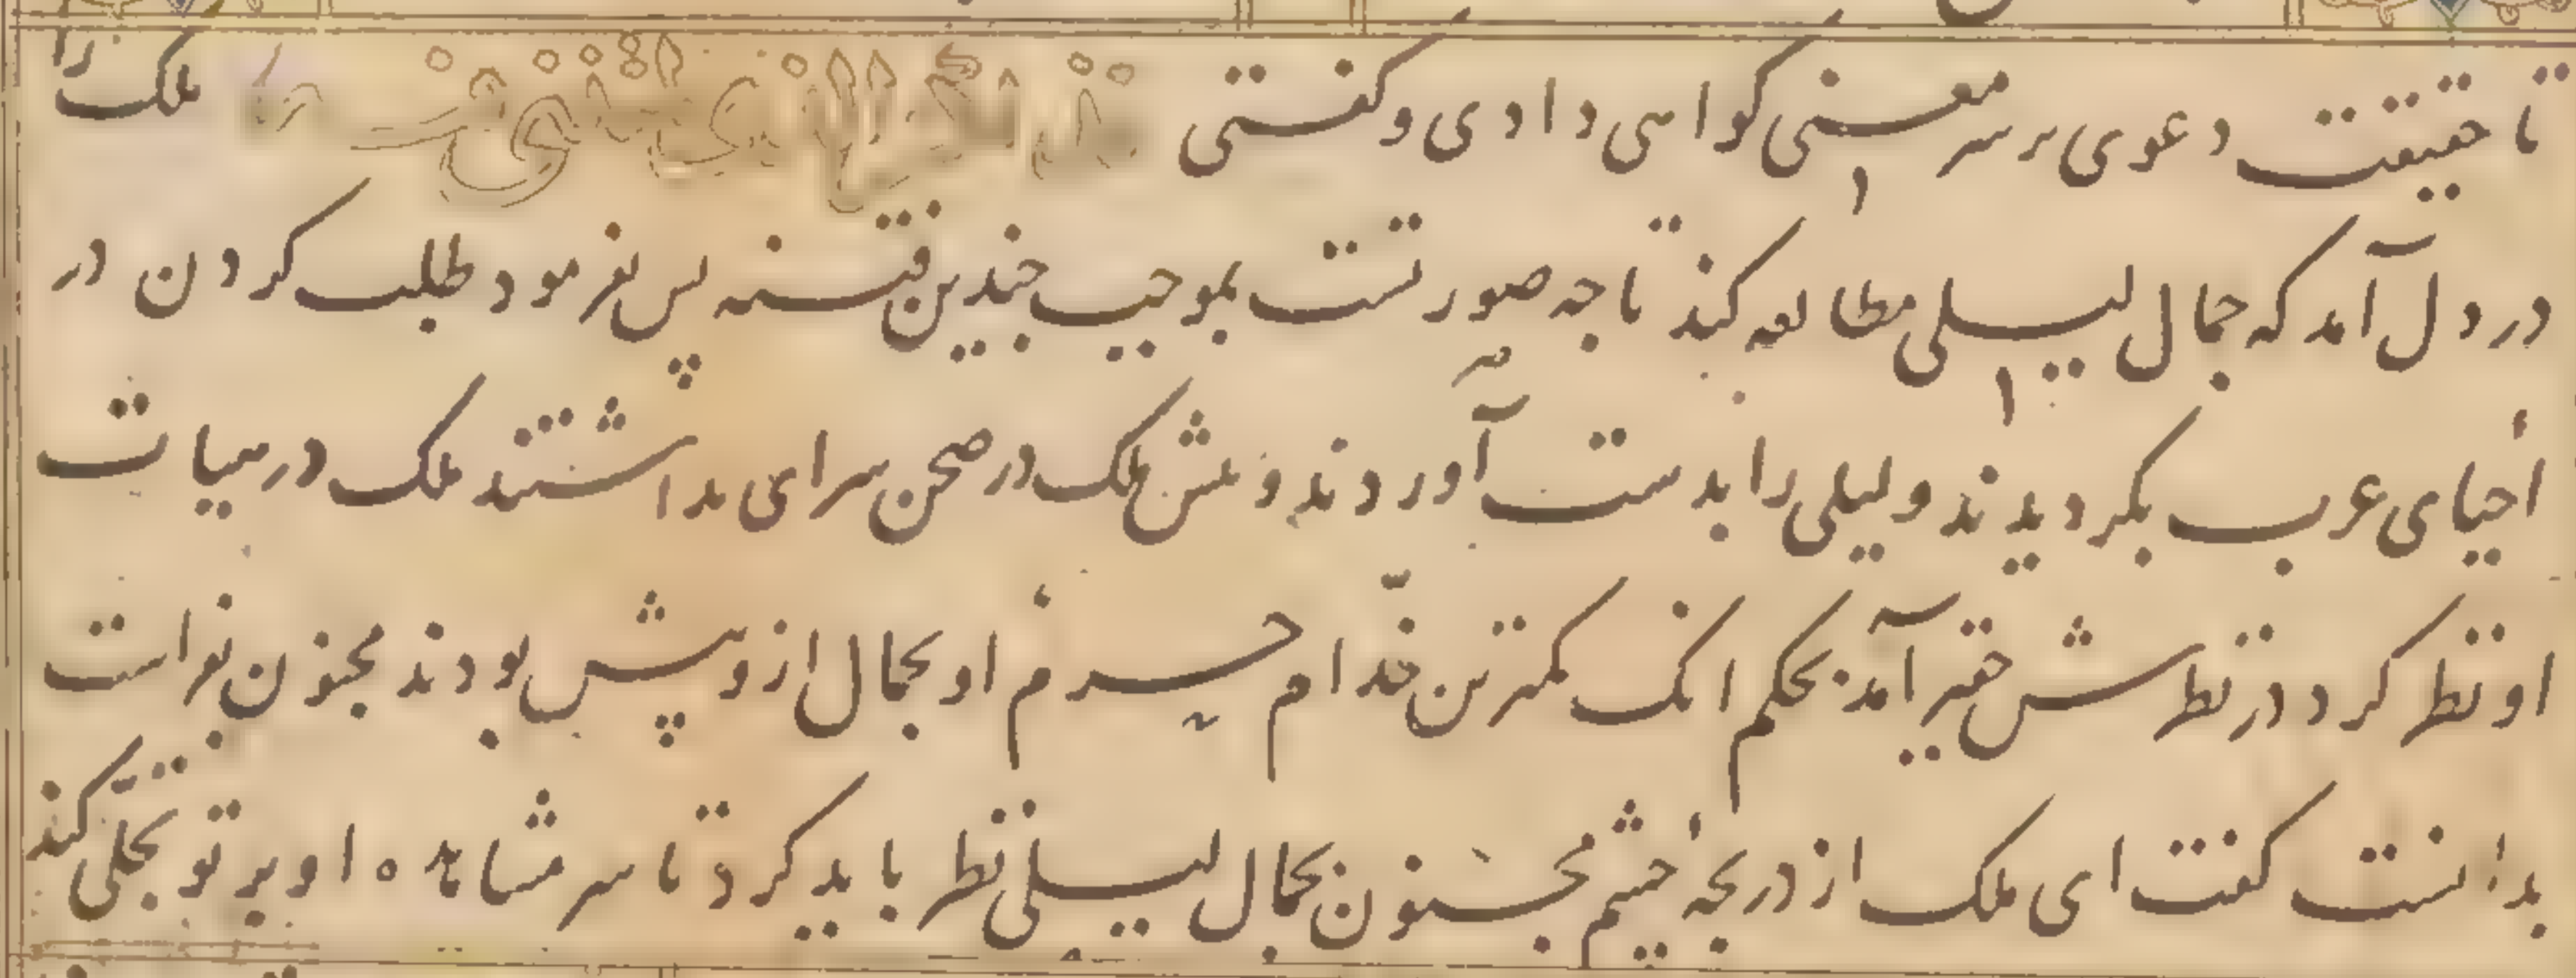 تا حقیقت دعوی بر سر معنی کواهی دادی و کفتی فذلکن الذی لمتننی فیه ملک را
در دل آمد که جمال لیلی مطالعه کند تا جه صورتست بموجب جندین فتنه پس بفرمود طلب کردن در
أحیای عرب بکردیدند و لیلی را بدست آوردند و بیش ملک در صحن سرای بداشتند ملک در هیات
او نظر کرد در نظرش حقیر آمد بحکم انک کمترین خدّام حرم او بجمال ازو پیش بودند مجنون بفراست
بدانست کفت ای ملک از دریجهٔ جشم مجنون بجمال لیلی نظر باید کرد تا سر مشاهده او بر تو تجلّی کند